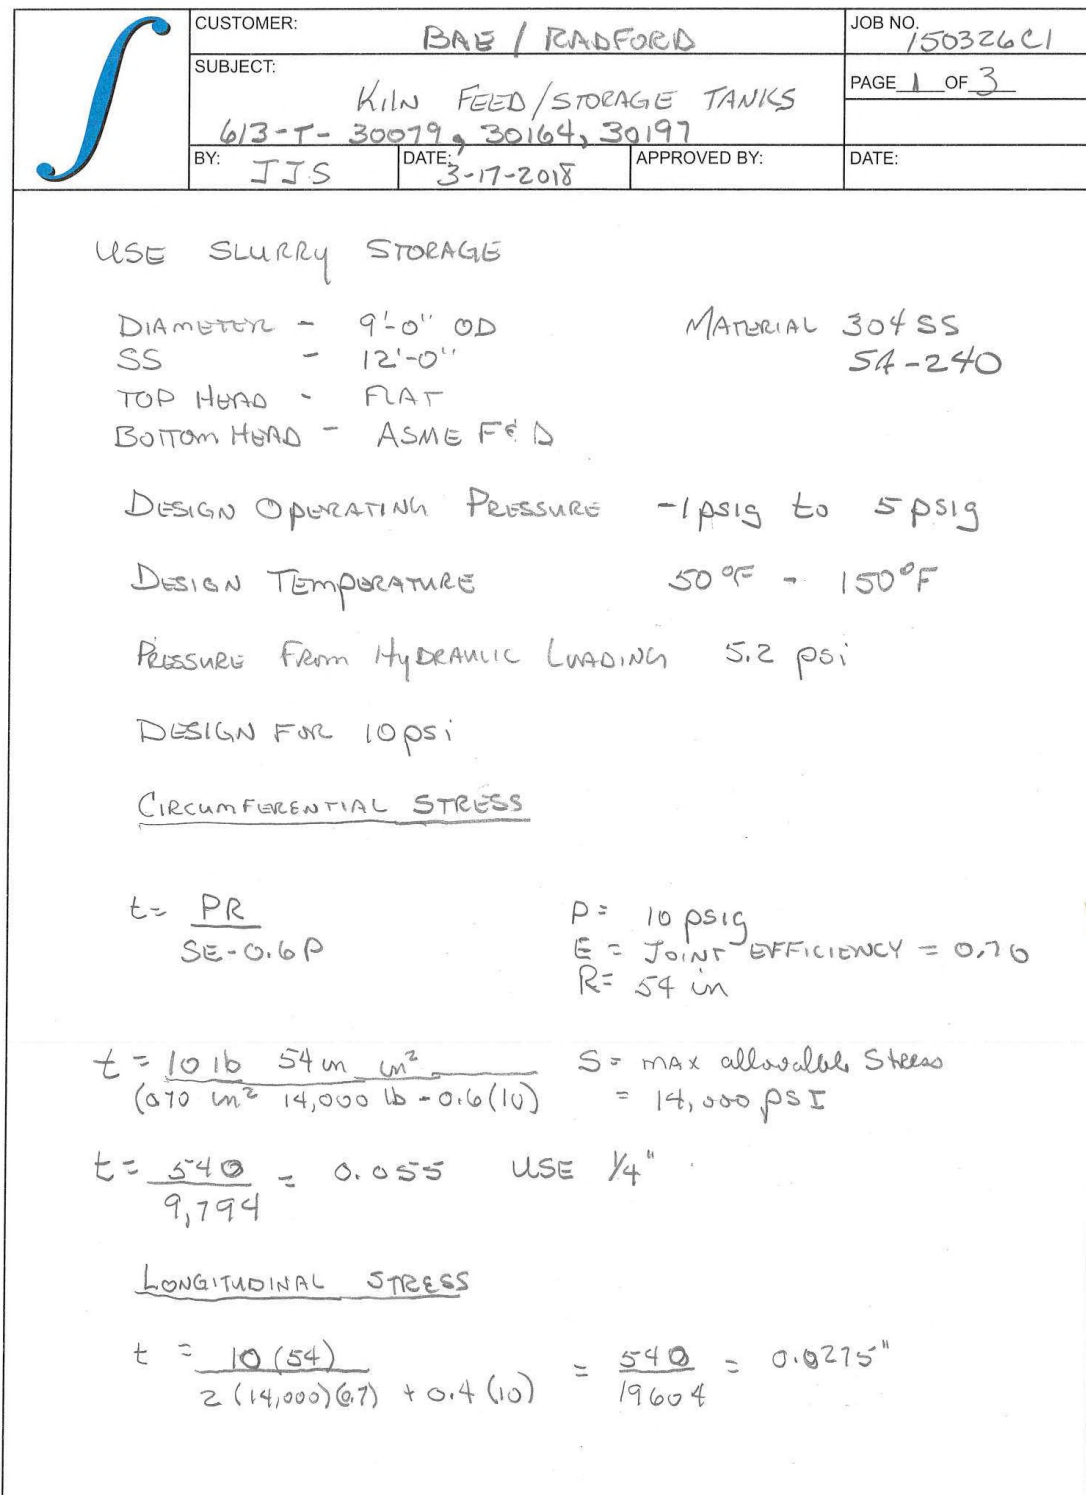 CUSTOMER: BAE / RADFORD
JOB NO. 150326C1
SUBJECT: KILN FEED/STORAGE TANKS
613-T-30079, 30164, 30197
PAGE 1 OF 3
BY: JJS
DATE: 3-17-2018
APPROVED BY:
DATE:
USE SLURRY STORAGE
DIAMETER - 9'-0" OD
MATERIAL 304 SS
SS - 12'-0"
SA-240
TOP HEAD - FLAT
BOTTOM HEAD - ASME F&D
DESIGN OPERATING PRESSURE -1 psig to 5 psig
DESIGN TEMPERATURE 50°F - 150°F
PRESSURE FROM HYDRAULIC LOADING 5.2 psi
DESIGN FOR 10 psi
CIRCUMFERENTIAL STRESS
t = PR
SE-0.6P
P = 10 psig
E = JOINT EFFICIENCY = 0.70
R = 54 in
t = 10 lb 54 in in²
(0.70 in² 14,000 lb - 0.6(10)
S = max allowable Stress
= 14,000 PSI
t = 540 = 0.055 USE 1/4"
9,794
LONGITUDINAL STRESS
t = 10 (54) = 540 = 0.0275"
2 (14,000)(0.7) + 0.4 (10) 19604